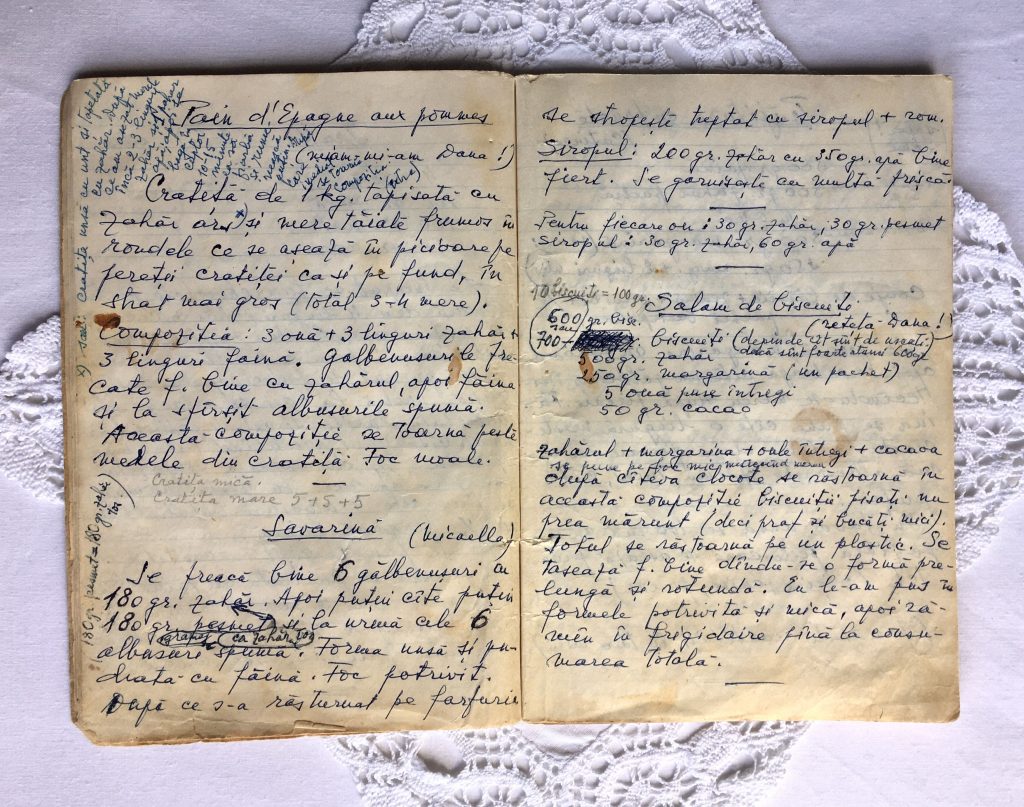 Pain d'Epagne aux pommes
(miam-mi-am Dana!)
Cratiță de 1 kg. tapisată cu
zahăr ars +) și mere tăiate frumos în
rondele ce se asează în picioare pe
pereții cratiței ca și pe fund, în
strat mai gros (total 3-4 mere).
Compoziția: 3 ouă + 3 linguri zahăr +
3 linguri făină. Gălbenușurile fre-
cate f. bine cu zahărul, apoi făina
și la sfîrșit albușurile spumă.
Aceasta compoziție se toarnă peste
merele din cratiță. Foc moale.
Cratița mică.
Cratița mare 5+5+5
+) sau: Cratița unsă cu unt și tapetată
cu zahăr. După
ce am asezat merele
încă 2-3 linguri
zahăr
10-15
minute
Savarină (Micaella)
Se freacă bine 6 gălbenușuri cu
180 gr. zahăr. Apoi puțin cîte puțin
180 gr. pesmet și la urmă cele 6
(ca zahăr tos)
albușuri spumă. Forma unsă și pu-
drată cu făină. Foc potrivit.
După ce s-a răsturnat pe farfurie
180 gr. pesmet = 180 gr. zahăr
tos
se stropește treptat cu siropul + rom.
Siropul: 200 gr. zahăr cu 350 gr. apă bine
fiert. Se garnisește cu multă frișcă
Pentru fiecare ou: 30 gr. zahăr, 30 gr. pesmet
Siropul: 30 gr. zahăr, 60 gr. apă
10 biscuiți = 100 gr.
Salam de biscuiți
rețeta Dana!
600 gr. bisc.
sau
700 biscuiți (depinde cît sînt de uscați;
dacă sînt foarte 600 gr.
500 gr. zahăr
250 gr. margarină (un pachet)
5 ouă puse întregi
50 gr. cacao
Zahărul + margarina + ouăle întregi + cacaoa
se pune pe foc mic, mestecînd mereu
după cîteva clocote se răstoarnă în
aceasta compoziție biscuiții pisați nu
prea mărunt (deci praf și bucăți mici).
Totul se răstoarnă pe un plastic. Se
tasează f. bine dîndu-se o formă pre-
lungă și rotundă. Eu le-am pus în
formele potrivită și mică, apoi ră-
mîn în frigidaire pînă la consu-
marea totală.